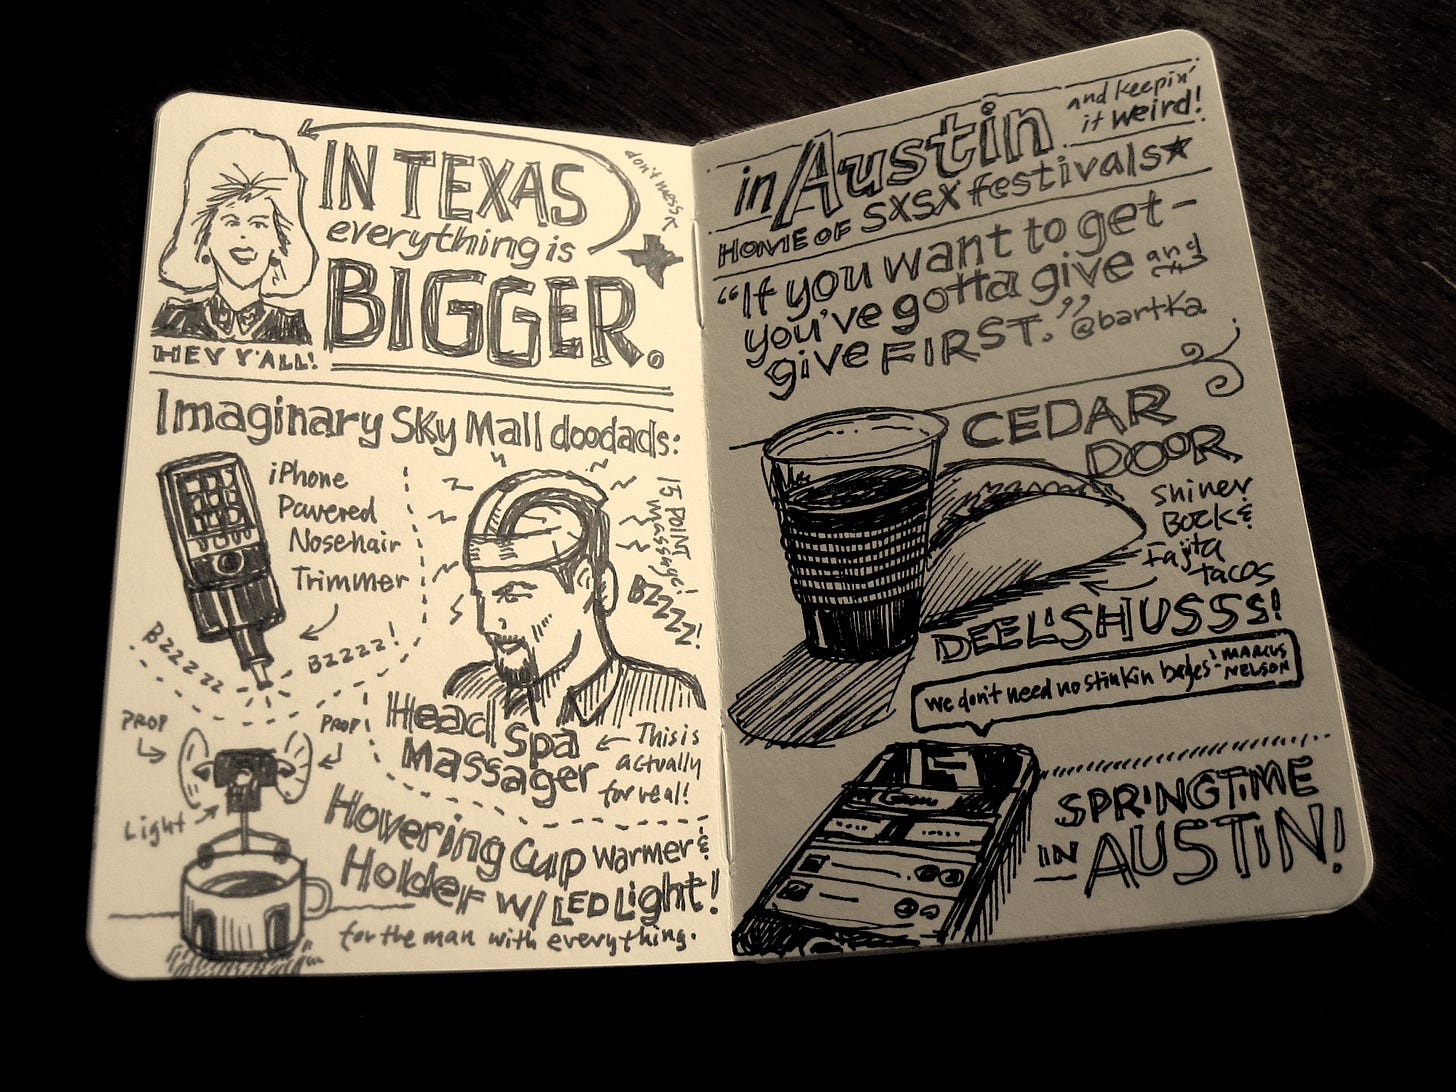 IN TEXAS
everything is
BIGGER.
don't mess
HEY Y'ALL!
Imaginary Sky Mall doodads:
iPhone
Powered
Nosehair
Trimmer
BZZZZZZ
BZZZZ!
15 POINT
massage!
BZZZZ!
Head Spa
Massager
This is
actually
for real!
PROP
PROP
Light
Hovering Cup Warmer &
Holder w/ LED Light!
for the man with everything.
in Austin
and keepin'
it weird!
HOME OF SXSX festivals
"If you want to get-
you've gotta give and
give FIRST." @bartka
CEDAR
DOOR
Shiner
Bock &
Fajita
tacos
DEELSHUSSS!
we don't need no stinkin bages! MARCUS
NELSON
SPRINGTIME
IN AUSTIN!